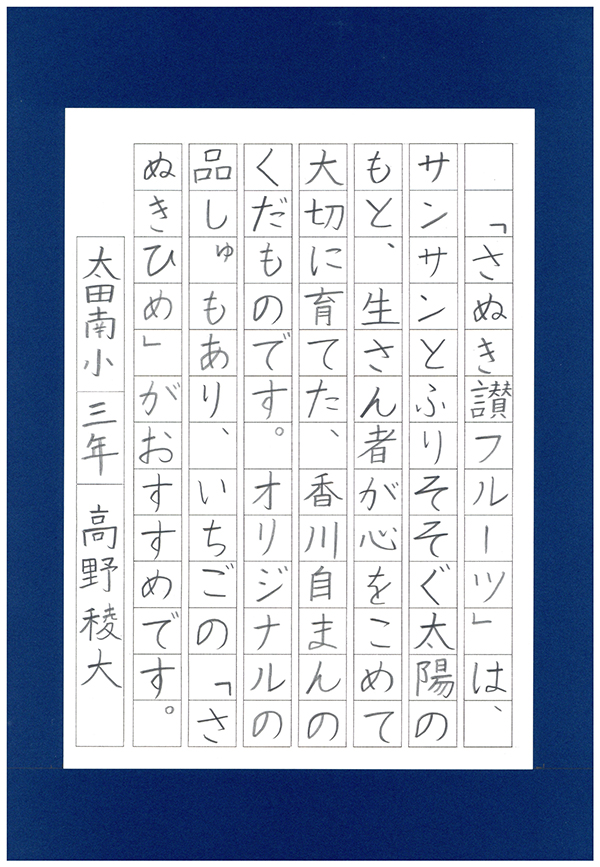 「さぬき讃フルーツ」は、
サンサンとふりそそぐ太陽の
もと、生さん者が心をこめて
大切に育てた、香川自まんの
くだものです。オリジナルの
品しゅもあり、いちごの「さ
ぬきひめ」がおすすめです。
太田南小 三年 高野稜大